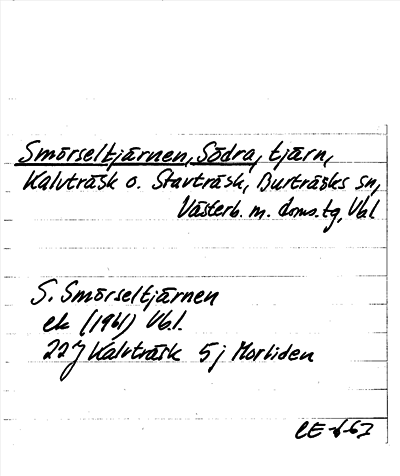 Smörseltjärnen, Södra, tjärn,
Kalvträsk o. Stavträsk, Burträsks sn,
Västerb. m. doms.tg, Vbl
S. Smörseltjärnen
ek (1961) Vb.l.
22J Kalvträsk 5j Morliden
CE-667